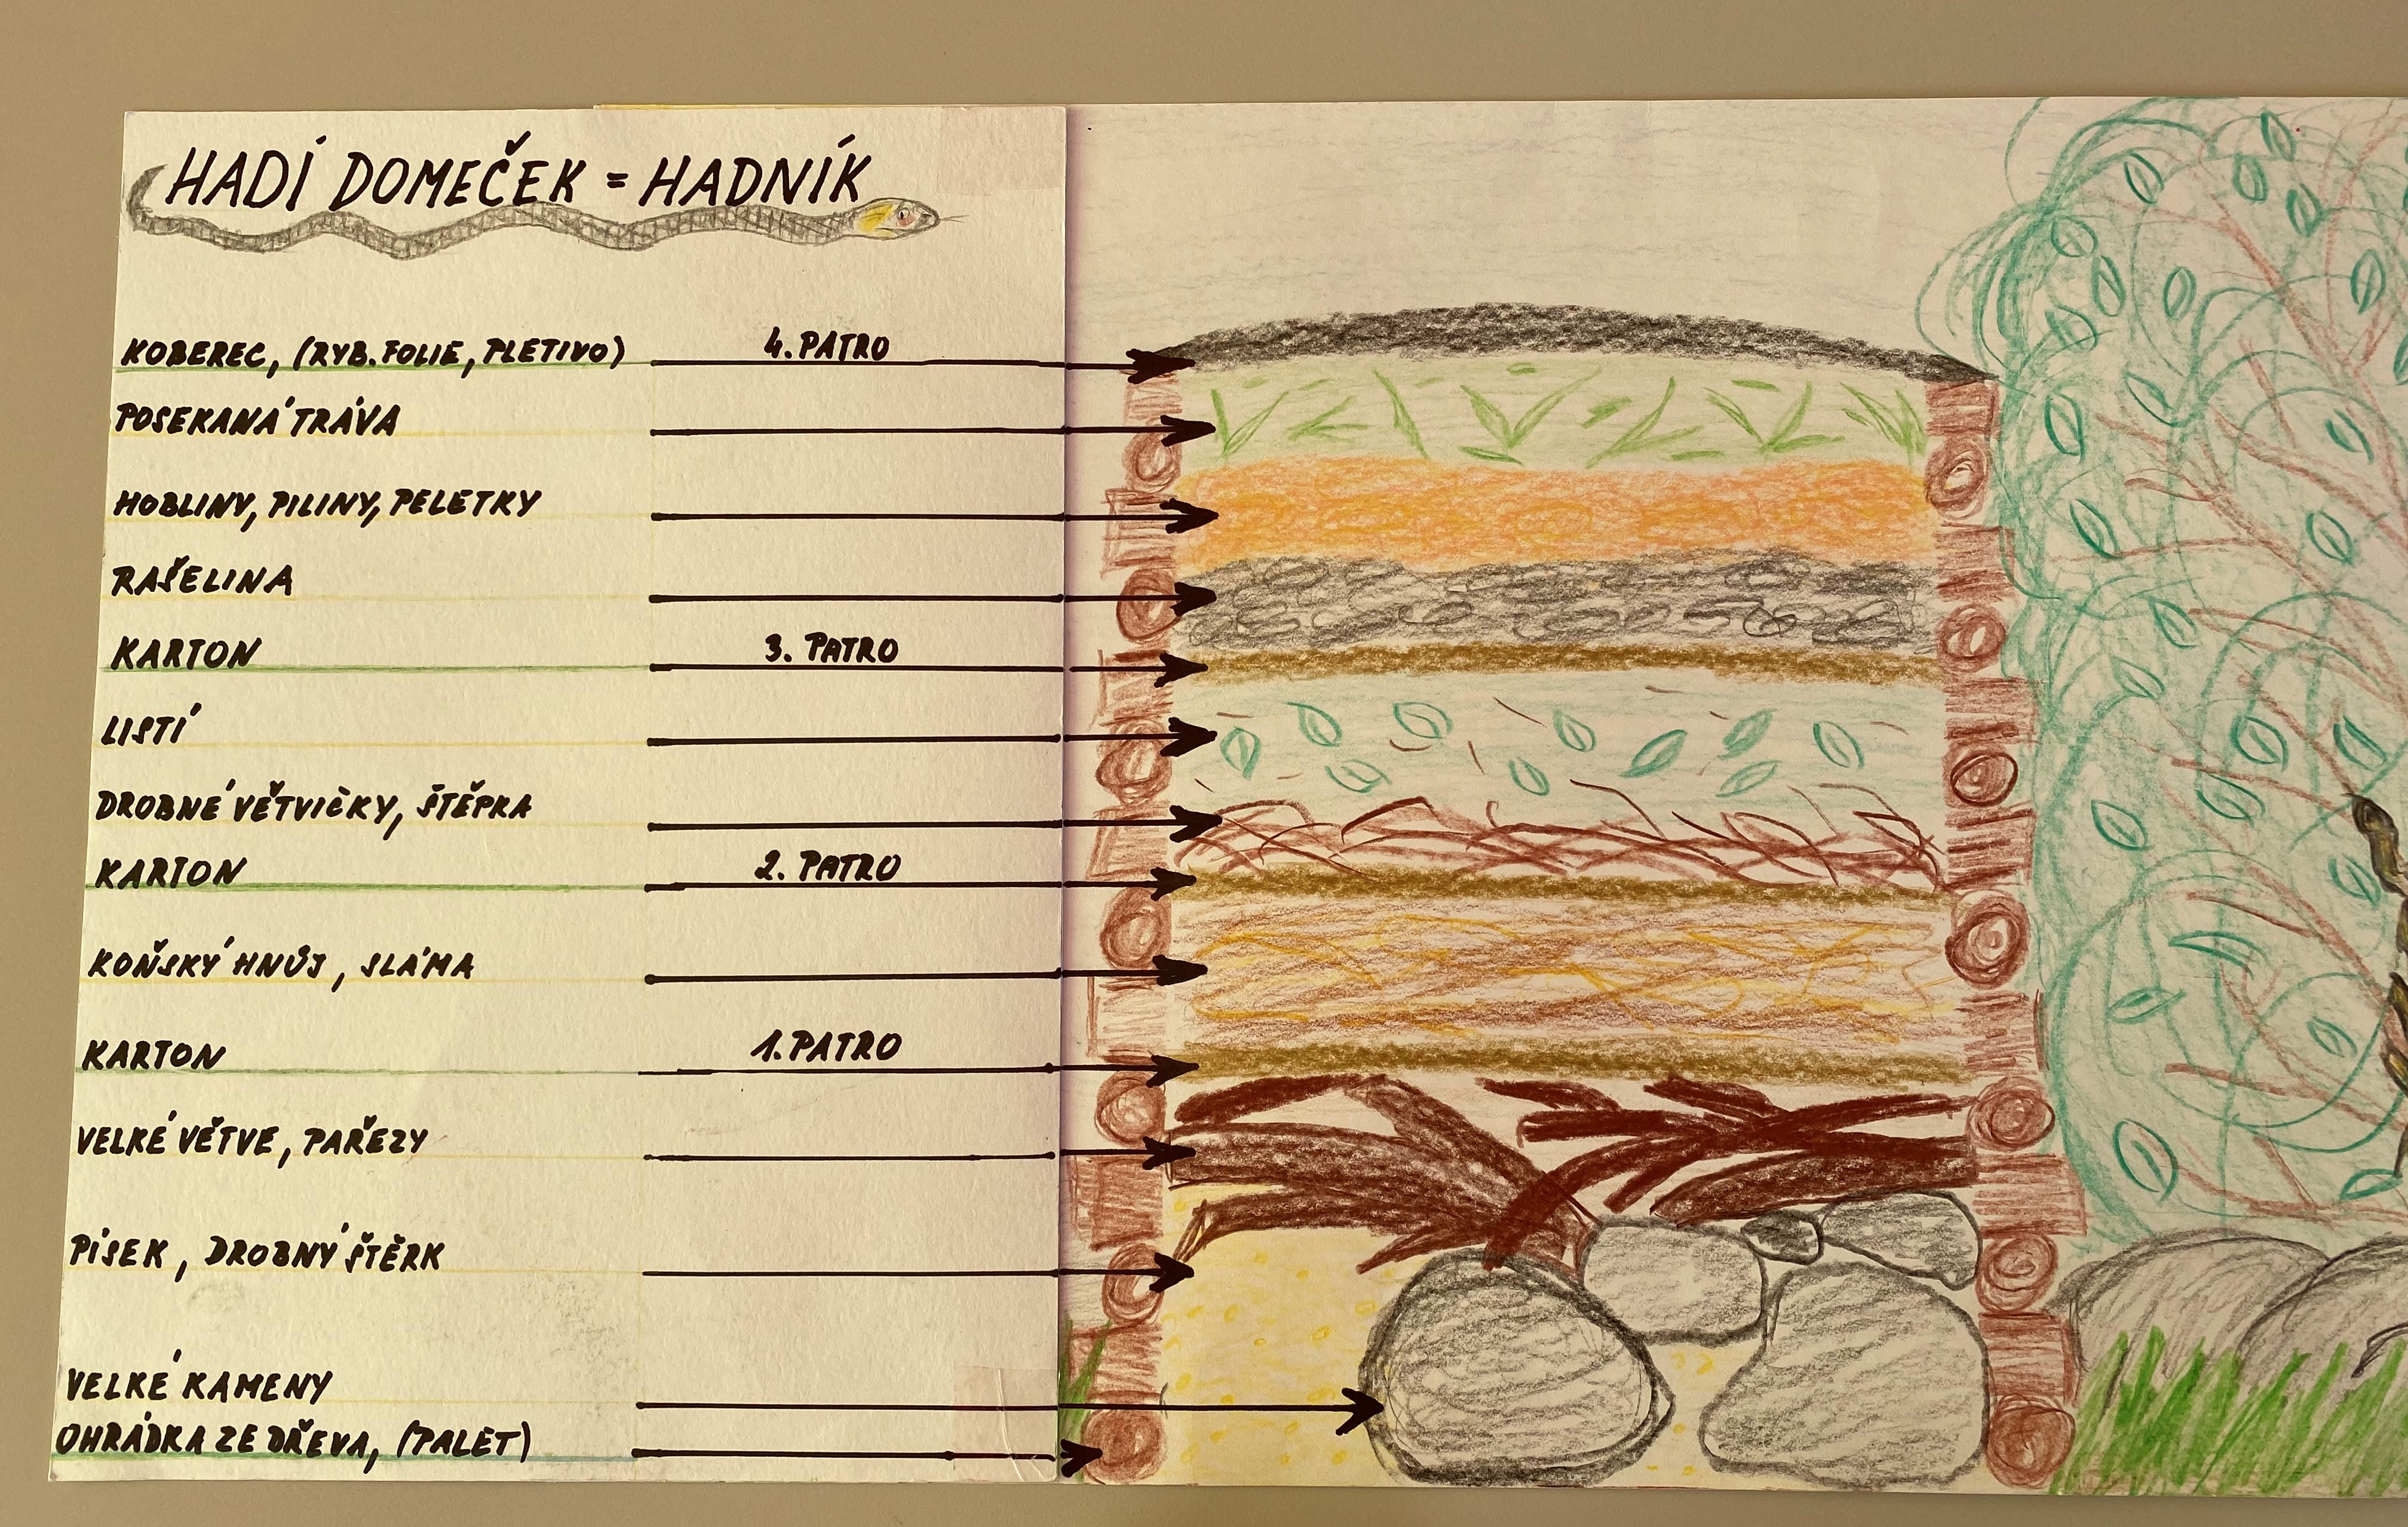 HADÍ DOMEČEK = HADNÍK
KOBEREC, (RYB. FOLIE, PLETIVO) 4. PATRO
POSEKANÁ TRÁVA
HOBLINY, PILINY, PELETKY
RAŠELINA
KARTON 3. PATRO
LISTÍ
DROBNÉ VĚTVIČKY, ŠTĚPKA
KARTON 2. PATRO
KOŇSKÝ HNŮJ, SLÁMA
KARTON 1. PATRO
VELKÉ VĚTVE, PAŘEZY
PÍSEK, DROBNÝ ŠTĚRK
VELKÉ KAMENY
OHRÁDKA ZE DŘEVA, (PALET)